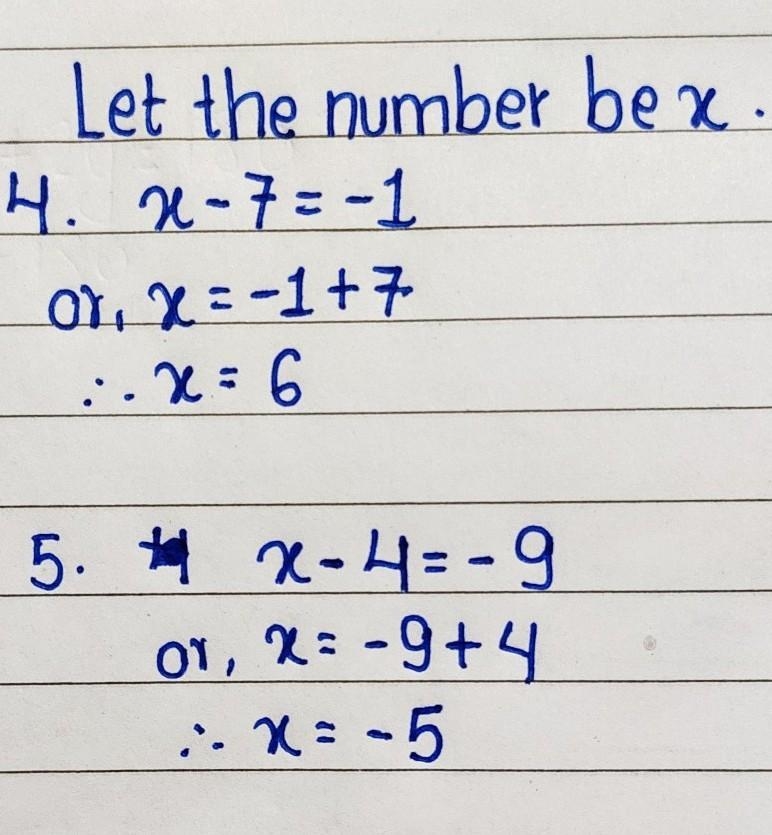 Let the number be x.
4. x - 7 = -1
or, x = -1 + 7
∴ x = 6
5. x - 4 = - 9
or, x = -9 + 4
∴ x = -5